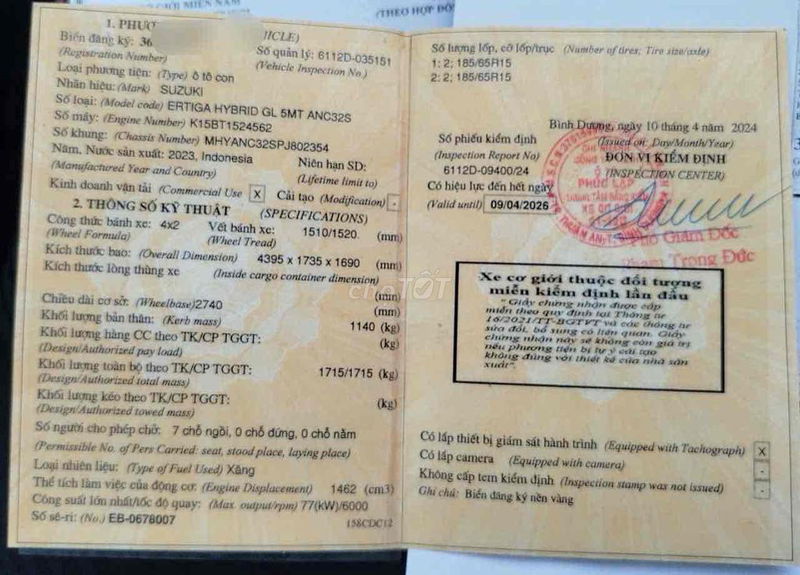 GIỚI MIỀN NAM
(THEO HỢP ĐỒ
1. PHƯƠ
ICLE)
Biển đăng ký: 36
(Registration Number)
Số quản lý: 6112D-035151
(Vehicle Inspection No.)
Loại phương tiện: (Type) ô tô con
Nhãn hiệu: (Mark) SUZUKI
Số loại: (Model code) ERTIGA HYBRID GL 5MT ANC32S
Số máy: (Engine Number) K15BT1524562
Số khung: (Chassis Number) MHYANC32SPJ802354
Năm, Nước sản xuất: 2023, Indonesia
(Manufactured Year and Country)
Niên hạn SD:
(Lifetime limit to)
Kinh doanh vận tải (Commercial Use) X Cải tạo (Modification) -
2. THÔNG SỐ KỸ THUẬT (SPECIFICATIONS)
Công thức bánh xe: 4x2 Vết bánh xe: 1510/1520 (mm)
(Wheel Formula) (Wheel Tread)
Kích thước bao: (Overall Dimension) 4395 x 1735 x 1690 (mm)
Kích thước lòng thùng xe (Inside cargo container dimension)
(mm)
Chiều dài cơ sở: (Wheelbase) 2740 (mm)
Khối lượng bản thân: (Kerb mass) 1140 (kg)
Khối lượng hàng CC theo TK/CP TGGT: (kg)
(Design/Authorized pay load)
Khối lượng toàn bộ theo TK/CP TGGT: 1715/1715 (kg)
(Design/Authorized total mass)
Khối lượng kéo theo TK/CP TGGT: (kg)
(Design/Authorized towed mass)
Số người cho phép chở: 7 chỗ ngồi, 0 chỗ đứng, 0 chỗ nằm
(Permissible No. of Pers Carried: seat, stood place, laying place)
Loại nhiên liệu: (Type of Fuel Used) Xăng
Thể tích làm việc của động cơ: (Engine Displacement) 1462 (cm3)
Công suất lớn nhất/tốc độ quay: (Max. output/rpm) 77(kW)/6000
Số sê-ri: (No.) EB-0678007
158CDC12
Số lượng lốp, cỡ lốp/trục (Number of tires; Tire size/axle)
1: 2; 185/65R15
2: 2; 185/65R15
Bình Dương, ngày 10 tháng 4 năm 2024
(Issued on: Day/Month/Year)
Số phiếu kiểm định
(Inspection Report No)
6112D-09400/24
ĐƠN VỊ KIỂM ĐỊNH
(INSPECTION CENTER)
Có hiệu lực đến hết ngày
(Valid until) 09/04/2026
PHÚC LẬP
Phó Giám Đốc
Phạm Trọng Đức
Xe cơ giới thuộc đối tượng
miễn kiểm định lần đầu
" Giấy chứng nhận được cấp
miễn theo quy định tại Thông tư
16/2021/TT-BGTVT và các thông tư
sửa đổi, bổ sung có liên quan. Giấy
chứng nhận này sẽ không còn giá trị
nếu phương tiện bị tự ý cải tạo
không đúng với thiết kế của nhà sản
xuất".
Có lắp thiết bị giám sát hành trình (Equipped with Tachograph) X
Có lắp camera (Equipped with camera) -
Không cấp tem kiểm định (Inspection stamp was not issued) -
Ghi chú: Biển đăng ký nền vàng
chợTỐT